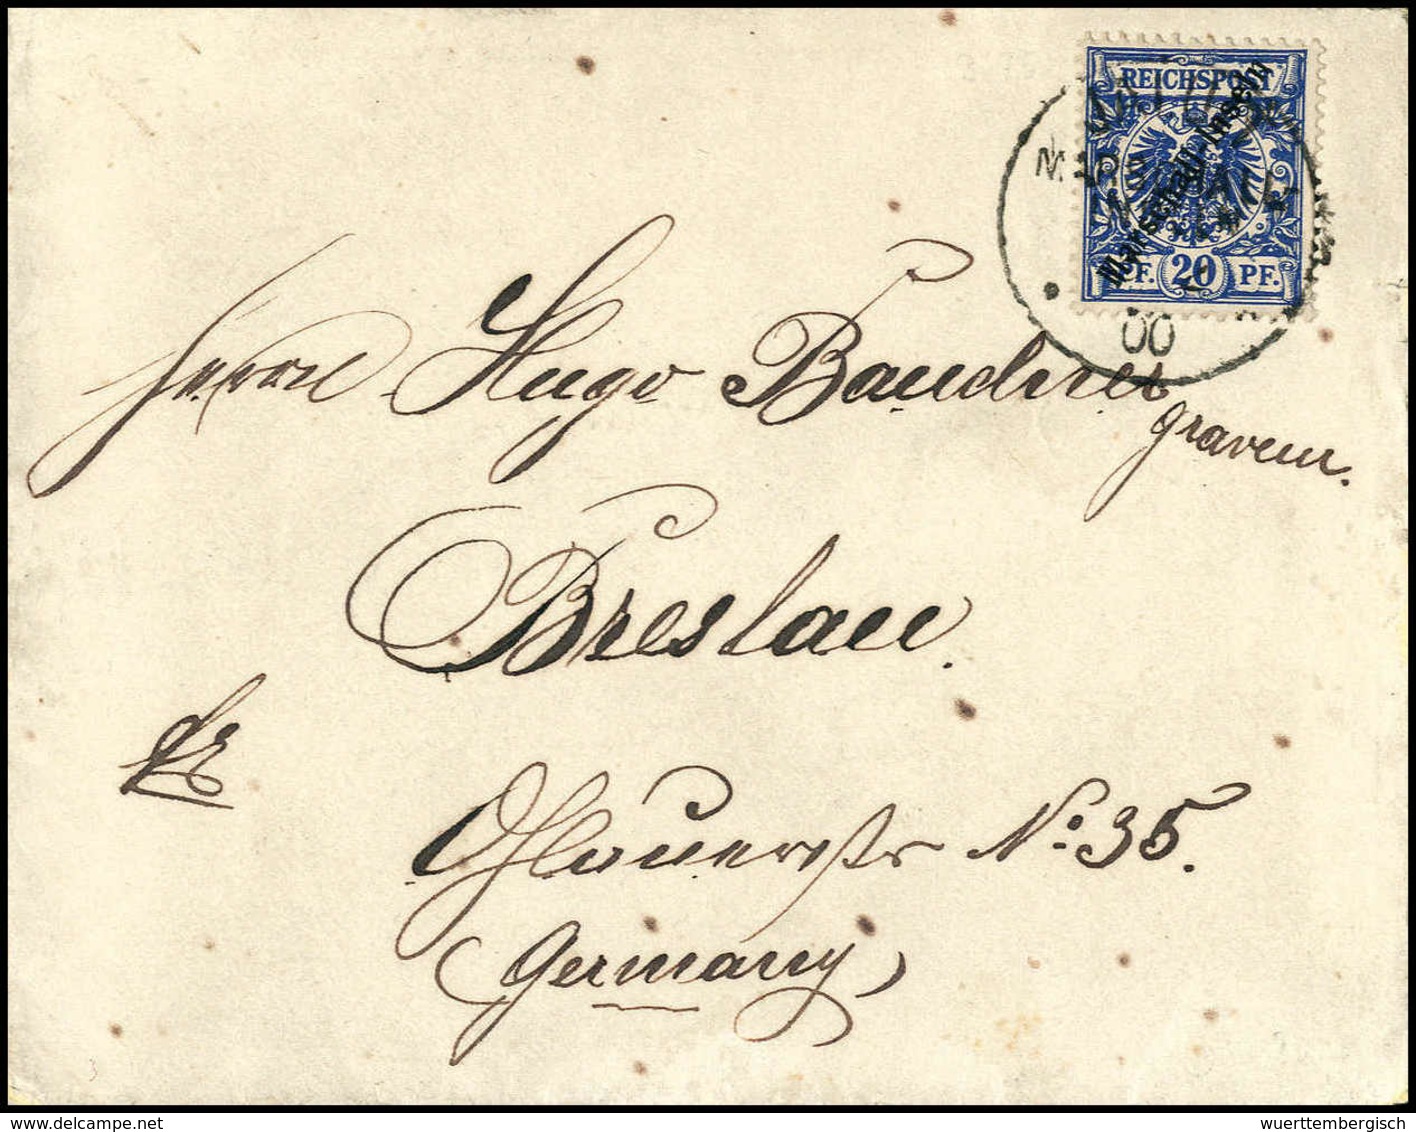 REICHSPOST
Marschall-Inseln
PF. 20 PF.
00
Herrn Hugo Baudner
graveur.
Breslau.
Ohlauerstr No. 35.
(Germany)
wuerttembergisch